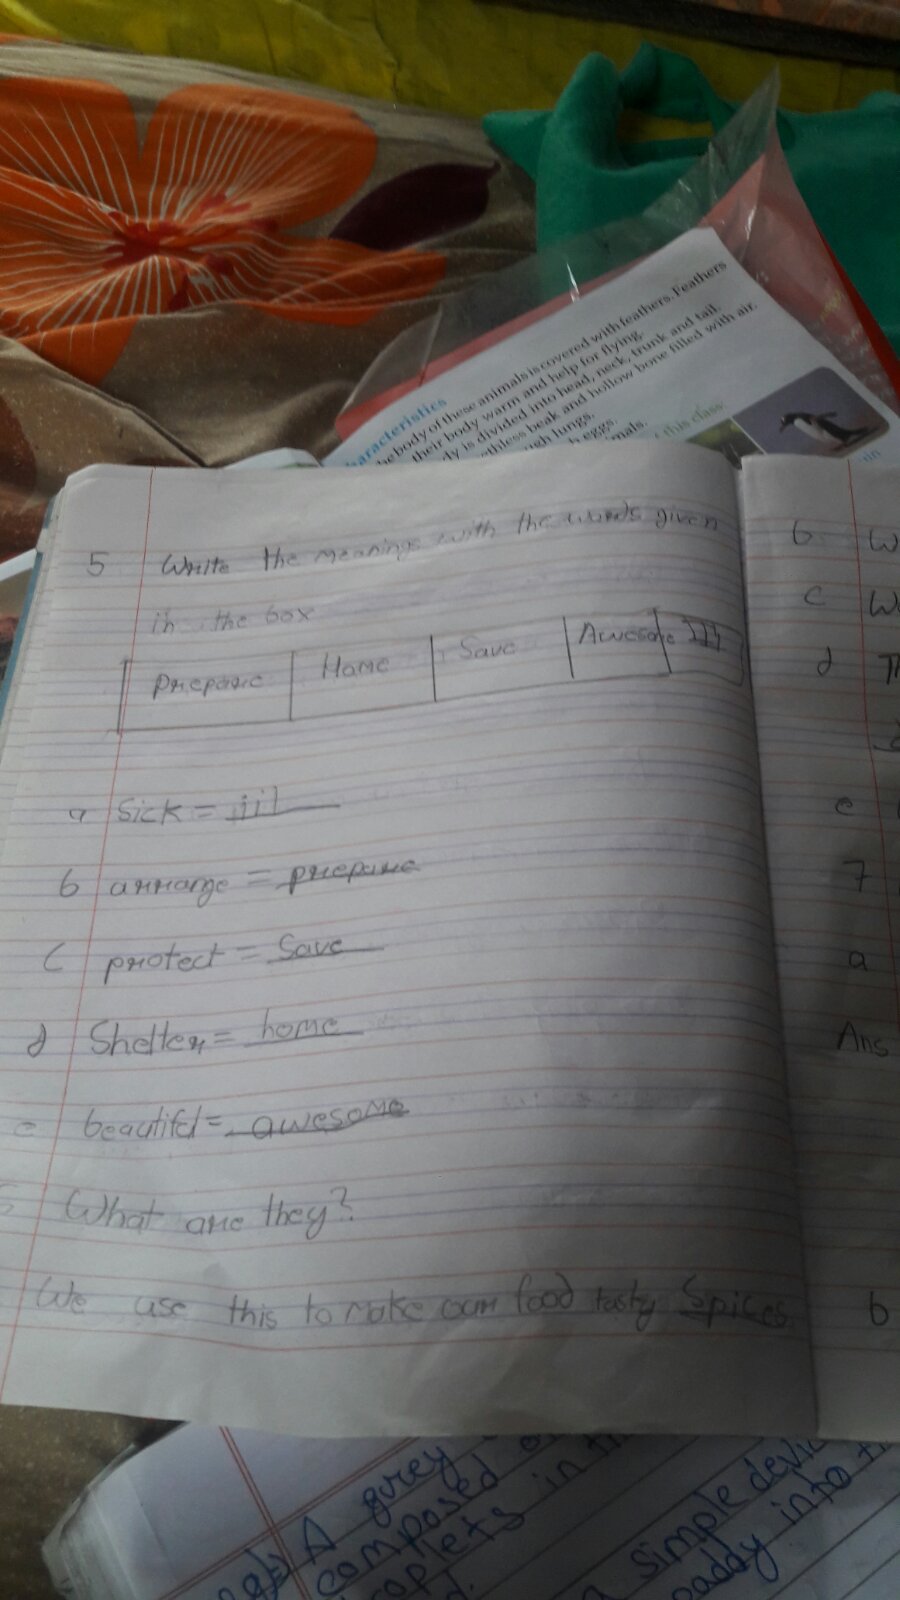 characteristics
he body of these animals is covered with feathers. Feathers
their body warm and help for flying.
dy is divided into head, neck, trunk and tail.
othless beak and hollow bone filled with air.
ugh lungs.
eggs.
mals.
this class
5 Write the meanings with the words given
in the box
Prepare Home Save Awesome Ill
a Sick = iil
b arrange = prepare
c protect = Save
d Shelter = home
e beautifel = awesome
What are they?
We use this to make our food tasty Spices
6 W
c W
d Th
e
7
a
Ans
b
A grey
composed
droplets in
a simple devic
paddy into